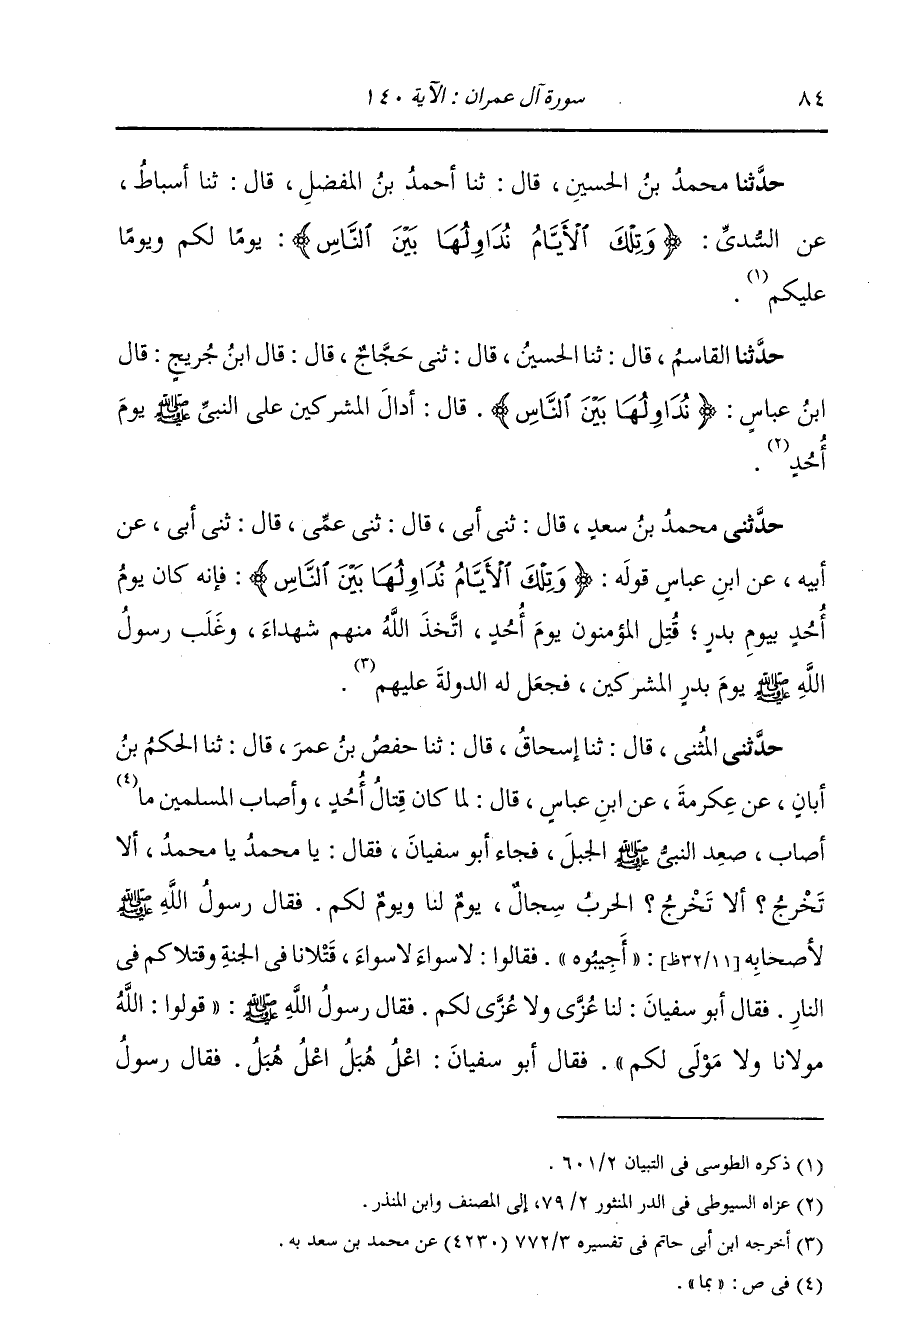 ٨٤ سورة آل عمران : الآية ١٤٠
حدَّثنا محمدُ بنُ الحسينِ ، قال : ثنا أحمدُ بنُ المفضلِ ، قال : ثنا أسباطُ ،
عن السُّدىِّ : ﴿ وَتِلْكَ ٱلْأَيَّامُ نُدَاوِلُهَا بَيْنَ ٱلنَّاسِ ﴾ : يومًا لكم ويومًا
عليكم(١) .
حدَّثنا القاسمُ ، قال : ثنا الحسينُ ، قال : ثنى حَجَّاجٌ ، قال : قال ابنُ جُريجٍ : قال
ابنُ عباسٍ : ﴿ نُدَاوِلُهَا بَيْنَ ٱلنَّاسِ ﴾ . قال : أدالَ المشركين على النبىِّ ﷺ يومَ
أُحُدٍ(٢) .
حدَّثنى محمدُ بنُ سعدٍ ، قال : ثنى أبى ، قال : ثنى عمِّى ، قال : ثنى أبى ، عن
أبيه ، عن ابنِ عباسٍ قولَه : ﴿ وَتِلْكَ ٱلْأَيَّامُ نُدَاوِلُهَا بَيْنَ ٱلنَّاسِ ﴾ : فإنه كان يومُ
أُحُدٍ بيومِ بدرٍ ؛ قُتِل المؤمنون يومَ أُحُدٍ ، اتَّخذَ اللَّهُ منهم شهداءَ ، وغَلَب رسولُ
اللَّهِ ﷺ يومَ بدرٍ المشركين ، فجعَل له الدولةَ عليهم(٣) .
حدَّثنى المُثنى ، قال : ثنا إسحاقُ ، قال : ثنا حفصُ بنُ عمرَ ، قال : ثنا الحكمُ بنُ
أبانٍ ، عن عِكرمةَ ، عن ابنِ عباسٍ ، قال : لما كان قِتالُ أُحُدٍ ، وأصاب المسلمين ما(٤)
أصاب ، صعِد النبىُّ ﷺ الجبلَ ، فجاء أبو سفيانَ ، فقال : يا محمدُ يا محمدُ ، ألا
تَخْرجُ ؟ ألا تَخْرجُ ؟ الحربُ سِجالٌ ، يومٌ لنا ويومٌ لكم . فقال رسولُ اللَّهِ ﷺ
لأصحابِه [٣٢/١١ظ] : « أَجِيبُوه » . فقالوا : لا سواءَ لا سواءَ ، قَتْلانا فى الجنةِ وقتلاكم فى
النارِ . فقال أبو سفيانَ : لنا عُزَّى ولا عُزَّى لكم . فقال رسولُ اللَّهِ ﷺ : « قولوا : اللَّهُ
مولانا ولا مَوْلَى لكم » . فقال أبو سفيانَ : اعْلُ هُبَلُ اعْلُ هُبَلُ . فقال رسولُ
(١) ذكره الطوسى فى التبيان ٦٠١/٢ .
(٢) عزاه السيوطى فى الدر المنثور ٧٩/٢، إلى المصنف وابن المنذر .
(٣) أخرجه ابن أبى حاتم فى تفسيره ٧٧٢/٣ (٤٢٣٠) عن محمد بن سعد به .
(٤) فى ص : « بما » .